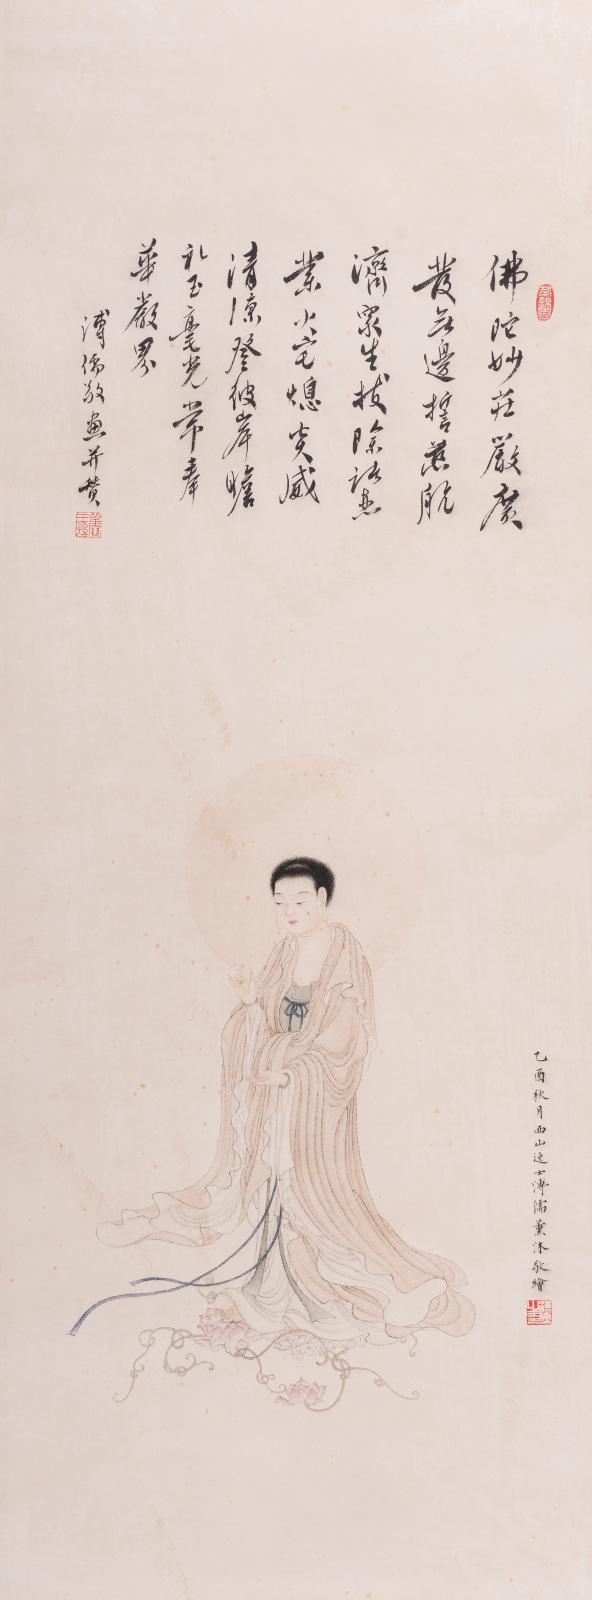 佛陀妙莊嚴廣
發無邊誓慈航
濟眾生拔除諸惡
業火宅熄炎威
清涼登彼岸瞻
礼玉毫光常奉
華嚴界
溥儒敬畫并贊
乙酉秋月西山逸士溥儒薰沐敬繪